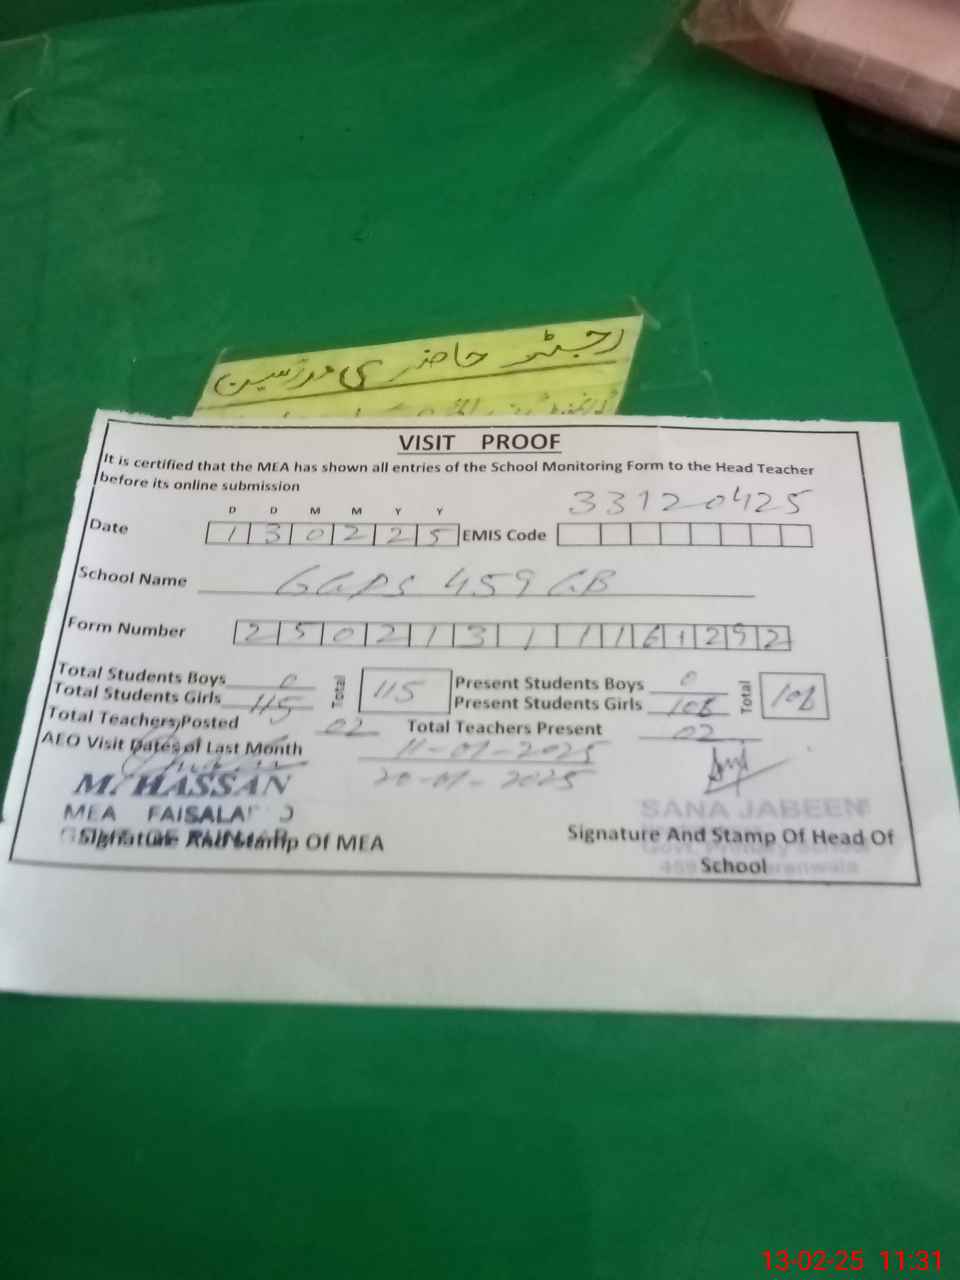 رجسٹر حاضری مدرسین
VISIT PROOF
It is certified that the MEA has shown all entries of the School Monitoring Form to the Head Teacher
before its online submission
33120425
D D M M Y Y
Date 1 3 0 2 2 5 EMIS Code
School Name GGPS 459 GB
Form Number 2 5 0 2 1 3 1 1 1 6 1 2 9 2
Total Students Boys 0 Total 115 Present Students Boys 0 Total 108
Total Students Girls 115 Present Students Girls 108
Total Teachers Posted 02 Total Teachers Present 02
AEO Visit Dates of Last Month 11-01-2025
20-01-2025
M. HASSAN
MEA FAISALA
SANA JABEEN
Signature And Stamp Of MEA
Signature And Stamp Of Head Of
School
13-02-25 11:31